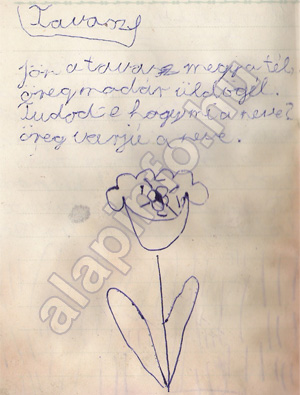 Tavasz
jön a tavasz megy a tél,
öreg madár üldögél.
Tudod e hogy mi a neve?
öreg varjú a neve.
alapinfo.hu